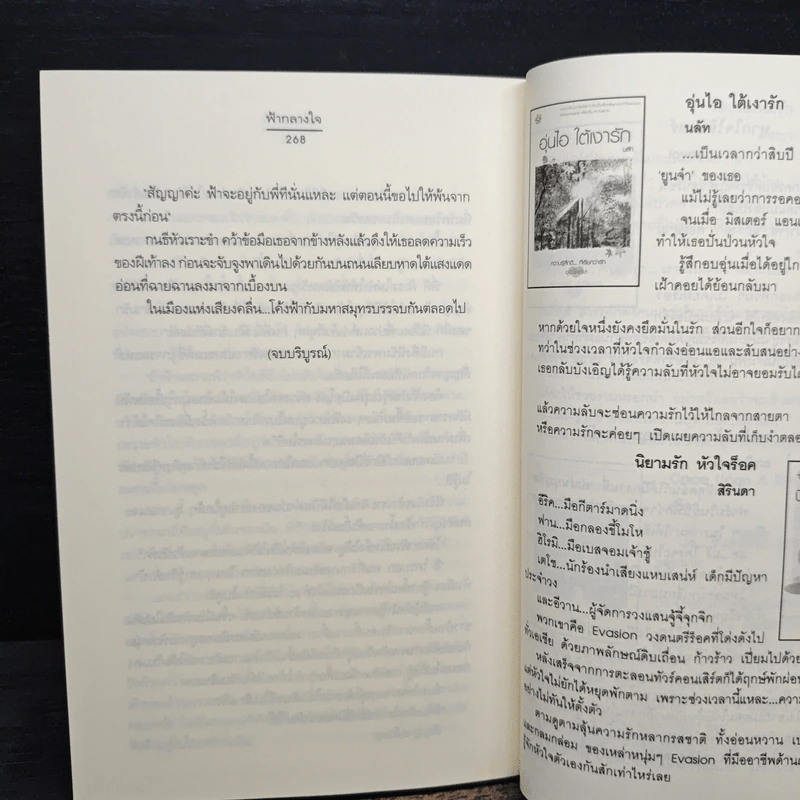 ฟ้ากลางใจ
268
"สัญญาค่ะ ฟ้าจะอยู่กับพี่ที่นั่นแหละ แต่ตอนนี้ขอไปให้พ้นจาก
ตรงนี้ก่อน"
กนธีหัวเราะขำ คว้าข้อมือเธอจากข้างหลังแล้วดึงให้เธอลดความเร็ว
ของฝีเท้าลง ก่อนจะจับจูงพาเดินไปด้วยกันบนถนนเลียบหาดใต้แสงแดด
อ่อนที่ฉายฉานลงมาจากเบื้องบน
ในเมืองแห่งเสียงคลื่น...โค้งฟ้ากับมหาสมุทรบรรจบกันตลอดไป
(จบบริบูรณ์)
อุ่นไอ ใต้เงารัก
นลัท
อุ่นไอ ใต้เงารัก
นลัท
...เป็นเวลากว่าสิบปี
'ยูนจำ' ของเธอ
แม้ไม่รู้เลยว่าการรอคอ
จนเมื่อ มิสเตอร์ แอน
ทำให้เธอปั่นป่วนหัวใจ
รู้สึกอบอุ่นเมื่อได้อยู่ใก
เฝ้าคอยได้ย้อนกลับมา
หากด้วยใจหนึ่งยังคงยึดมั่นในรัก ส่วนอีกใจก็อยาก
ทว่าในช่วงเวลาที่หัวใจกำลังอ่อนแอและสับสนอย่าง
เธอกลับบังเอิญได้รู้ความลับที่หัวใจไม่อาจยอมรับได้
แล้วความลับจะซ่อนความรักไว้ให้ไกลจากสายตา
หรือความรักจะค่อยๆ เปิดเผยความลับที่เก็บงำตลอ
นิยามรัก หัวใจร็อค
สิรินดา
อีริค...มือกีตาร์มาดนิ่ง
ฟาน...มือกลองขี้โมโห
ฮิโรมิ...มือเบสจอมเจ้าชู้
เตโซ...นักร้องนำเสียงแหบเสน่ห์ เด็กมีปัญหา
ประจำวง
และอีวาน...ผู้จัดการวงแสนจู้จี้จุกจิก
พวกเขาคือ Evasion วงดนตรีร็อคที่โด่งดังไป
ทั่วเอเชีย ด้วยภาพลักษณ์ดิบเถื่อน ก้าวร้าว เปี่ยมไปด้วย
หลังเสร็จจากการตะลอนทัวร์คอนเสิร์ตก็ได้ฤกษ์พักผ่อน
แต่หัวใจไม่ยักได้หยุดพักตาม เพราะช่วงเวลานี้แหละ...ความ
อย่างไม่ทันให้ตั้งตัว
ตามดูตามลุ้นความรักหลากรสชาติ ทั้งอ่อนหวาน เ
และกลมกล่อม ของเหล่าหนุ่มๆ Evasion ที่มืออาชีพด้าน
รู้จักหัวใจตัวเองกันสักเท่าไหร่เลย